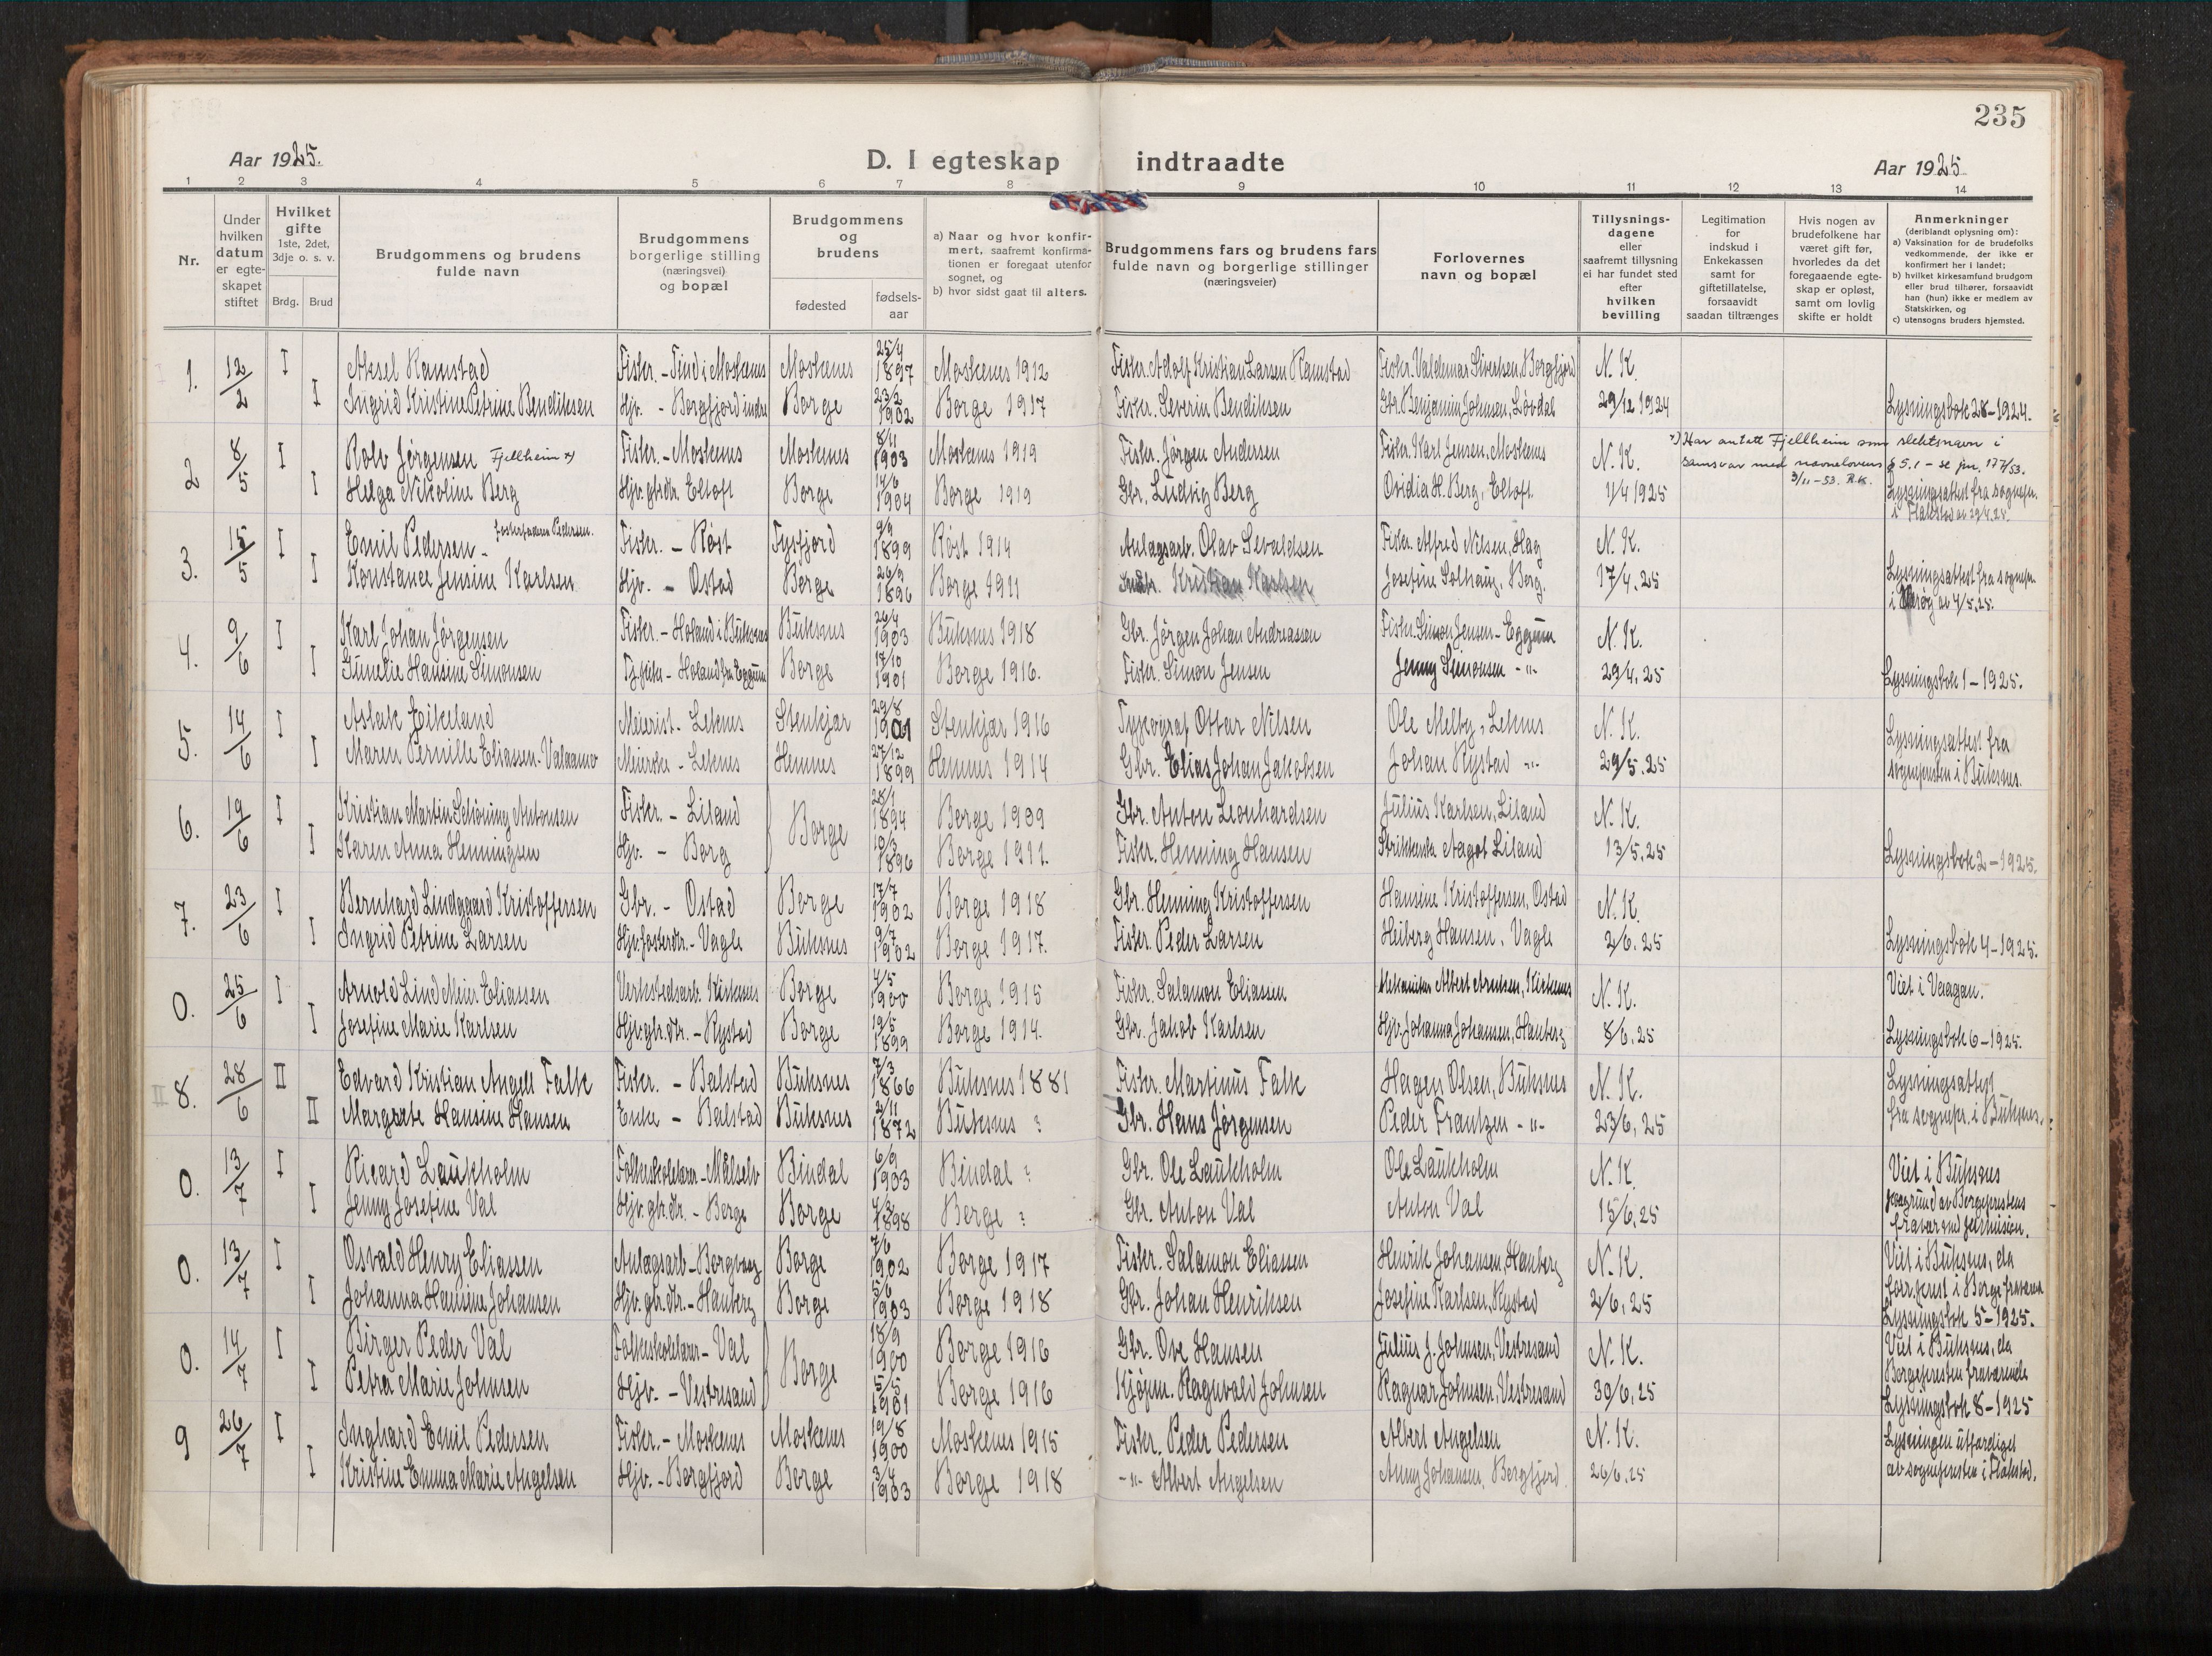 235
Aar 1925.
D. I egteskap indtraadte
Aar 1925
1 2 3 4 5 6 7 8 9 10 11 12 13 14
Nr.
Under hvilken datum er egteskapet stiftet
Hvilket gifte 1ste, 2det, 3dje o. s. v.
Brdg. Brud
Brudgommens og brudens fulde navn
Brudgommens borgerlige stilling (næringsvei) og bopæl
Brudgommens og brudens
fødested
fødsels-aar
a) Naar og hvor konfirmert, saafremt konfirmationen er foregaat utenfor sognet, og
b) hvor sidst gaat til alters.
Brudgommens fars og brudens fars fulde navn og borgerlige stillinger (næringsveier)
Forlovernes navn og bopæl
Tillysningsdagene eller saafremt tillysning ei har fundet sted efter hvilken bevilling
Legitimation for indskud i Enkekassen samt for giftetillatelse, forsaavidt saadan tiltrænges
Hvis nogen av brudefolkene har været gift før, hvorledes da det foregaaende egteskap er opløst, samt om lovlig skifte er holdt
Anmerkninger (deriblandt oplysning om):
a) Vaksination for de brudefolks vedkommende, der ikke er konfirmert her i landet;
b) hvilket kirkesamfund brudgom eller brud tilhører, forsaavidt han (hun) ikke er medlem av Statskirken, og
c) utensogns bruders hjemsted.
1. 12/2 I Aksel Ramstad Fisker. - Tind i Moskenes Moskenes 25/4 1897 Moskenes 1912 Fisker. Adolf Kristian Larsen Ramstad Fisker. Valdemar Sivertsen, Borgfjord N. K.
I Ingrid Kristine Petrine Bendiksen Hjv. - Borgfjord indre Borge 23/2 1902 Borge 1917 Fisker. Severin Bendiksen Gbr. Benjamin Johnsen, Løvdal 29/12 1924 Lysningsbok 28-1924.
2 8/5 I Rolv Jørgensen Fjellheim x) Fisker. - Moskenes Moskenes 8/11 1903 Moskenes 1919 Fisker. Jørgen Andersen Fisker. Karl Jensen, Moskenes N. K. x) Har antatt Fjellheim som slektsnavn i samsvar med navnelovens § 5.1 - se jnr. 177/53. 3/11-53. R.K.
I Helga Nikoline Berg Hjv. gbrdtr. Eltoft Borge 14/6 1904 Borge 1919 Gbr. Ludvig Berg Ovidia H. Berg, Eltoft 1/4 1925 Lysningsattest fra sognepr. i Flakstad av 29/4.25.
3. 15/5 I Emil Pedersen - fosterfaderen Pedersen. Fisker. - Røst Tysfjord 9/9 1899 Røst 1914 Anlagsarb. Olav Sevaldsen Fisker. Alfred Nilsen, Hag N. K.
I Konstance Jensine Karlsen Hjv. - Ostad Borge 26/9 1896 Borge 1911 Kristian Josefine Solhaug, Borg. 17/4.25 Lysningsattest fra sognepr. i Værøy av 4/5.25.
4. 9/6 I Karl Johan Jørgensen Fisker. - Holand i Buksnes Buksnes 26/4 1903 Buksnes 1918 Gbr. Jørgen Johan Andreassen Fisker. Simon Jensen - Eggum N. K.
I Gunelie Hansine Simonsen Tj.pike - Holand fra Eggum Borge 17/10 1901 Borge 1916. Fisker. Simon Jensen Jenny Simonsen -"- 29/4.25 Lysningsbok 1-1925.
5. 14/6 I Aslak Eikeland Meierist. - Leknes Stenkjær 29/8 1901 Stenkjær 1916 Typograf Ottar Nilsen Ole Melby, Leknes N. K.
I Maren Pernille Eliassen-Valaamo Meierske - Leknes Hemnes 27/12 1899 Hemnes 1914 Gbr. Elias Johan Jakobsen Johan Rystad -"- 29/5.25 Lysningsattest fra sognepresten i Buksnes.
6. 19/6 I Kristian Martin Schöning Antonsen Fisker. - Liland Borge 28/1 1894 Borge 1909 Gbr. Anton Leonhardsen Julius Karlsen, Liland N. K.
I Karen Anna Henningsen Hjv. - Borg 10/3 1896 Borge 1911. Fisker. Henning Hansen Strikkerske Aagot Liland 13/5.25 Lysningsbok 2-1925.
7. 23/6 I Bernhard Lindgaard Kristoffersen Gbr. - Ostad Borge 17/7 1902 Borge 1918 Gbr. Henning Kristoffersen Hansine Kristoffersen, Ostad N. K.
I Ingrid Petrine Larsen Hjv. fosterdtr. - Vagle Buksnes 9/7 1902 Borge 1917. Fisker. Peder Larsen Heiberg Hansen, Vagle 2/6.25 Lysningsbok 4-1925.
0. 25/6 I Arnold Lind Meier Eliassen Verkstedsarb. Kirkenes Borge 4/5 1900 Borge 1915 Fisker. Salamon Eliassen Mekaniker Albert Arntsen, Kirkenes N. K. Viet i Vaagan.
I Josefine Marie Karlsen Hjv. gbr.dtr. - Rystad Borge 19/5 1899 Borge 1914. Gbr. Jakob Karlsen Hjv. Johanna Johansen, Hauberg 8/6.25 Lysningsbok 6-1925.
II 8. 28/6 II Edvard Kristian Angell Falk Fisker. - Balstad Buksnes 7/3 1866 Buksnes 1881 Fisker. Martinus Falk Hagen Olsen, Buksnes N. K. Lysningsattest
II Margrete Hansine Hansen Enke - Balstad Buksnes 2/11 1872 Buksnes ? Gbr. Hans Jørgensen Peder Frantzen -"- 23/6.25 fra sognepr. i Buksnes.
0. 13/7 I Ricard Laukholm Folkeskolelærer - Målselv Bindal 6/9 1903 Bindal ? Gbr. Ole Laukholm Ole Laukholm N. K. Viet i Buksnes
I Jenny Josefine Val Hjv. gbr.dtr. - Borge Borge 1898 Borge ? Gbr. Anton Val Anton Val 15/6.25 paagrund av Borgeprestens fravær med permisjon.
0. 13/7 I Osvald Henry Eliassen Anlagsarb - Borgvaag Borge 7/6 1902 Borge 1917 Fisker. Salamon Eliassen Henrik Johansen, Hauberg N. K. Viet i Buksnes, da
I Johanna Hansine Johansen Hjv. gbr.dtr. - Hauberg Borge 5/6 1903 Borge 1918 Gbr. Johan Henriksen Josefine Karlsen, Rystad 2/6.25 prest i Borge fraværende Lysningsbok 5-1925.
0. 14/7 I Birger Peder Val Folkeskolelærer - Val Borge 18/9 1900 Borge 1916 Gbr. Ove Hansen Julius J. Johnsen, Vestresand N. K. Viet i Buksnes, da
I Petra Marie Johnsen Hjv. - Vestresand 5/5 1901 Borge 1916 Kjøpm. Ragnvald Johnsen Ragnar Johnsen, Vestresand 30/6.25 Borgepresten fraværende Lysningsbok 8-1925
9 26/7 I Inghard Emil Pedersen Fisker. - Moskenes Moskenes 19/8 1900 Moskenes 1915 Fisker. Peder Pedersen Albert Angelsen N. K. Lysningen utfærdiget
I Kristine Emma Marie Angelsen Hjv. - Borgfjord Borge 3/4 1903 Borge 1918 -"- Albert Angelsen Anny Johansen, Borgfjord 26/6.25 av sognepresten i Flakstad.